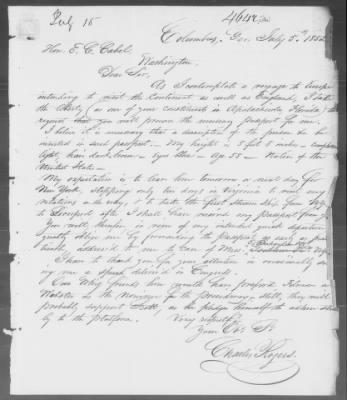 July 15
4642
Columbus, Geo. July 5th 1852
Hon. E. C. Cabell,
Washington.
Dear Sir,
As I contemplate a voyage to Europe
intending to visit the Continent as well as England, I take
the liberty (as one of your constituents in Apalachicola, Florida) to
request that you will procure the necessary passport for me.
I believe it is necessary that a description of the person be
inserted in such passport. My height is 5 feet 8 inches - complexion
light, hair dark brown - eyes blue - Age 55 - Native of the
United States -
My expectation is to leave here tomorrow or next day for
New York, stopping only ten days in Virginia to visit my
relations on the way, & to take the first steam ship from
to Liverpool after I shall have received my passport from you.
You will therefore in view of my intended quick departure
greatly oblige me by forwarding the passport as early as prac-
ticable, addressed to me to care of Messrs
I have to thank you for your attention in occasionally send-
ing me a speech delivered in Congress.
Our Whig friends here would have preferred Fillmore or
Webster to the nominee for the presidency - still, they will
probably support Scott, as he pledges himself to the
ly to the platform.
Very respectfully
Your Obt St
Charles Rogers.